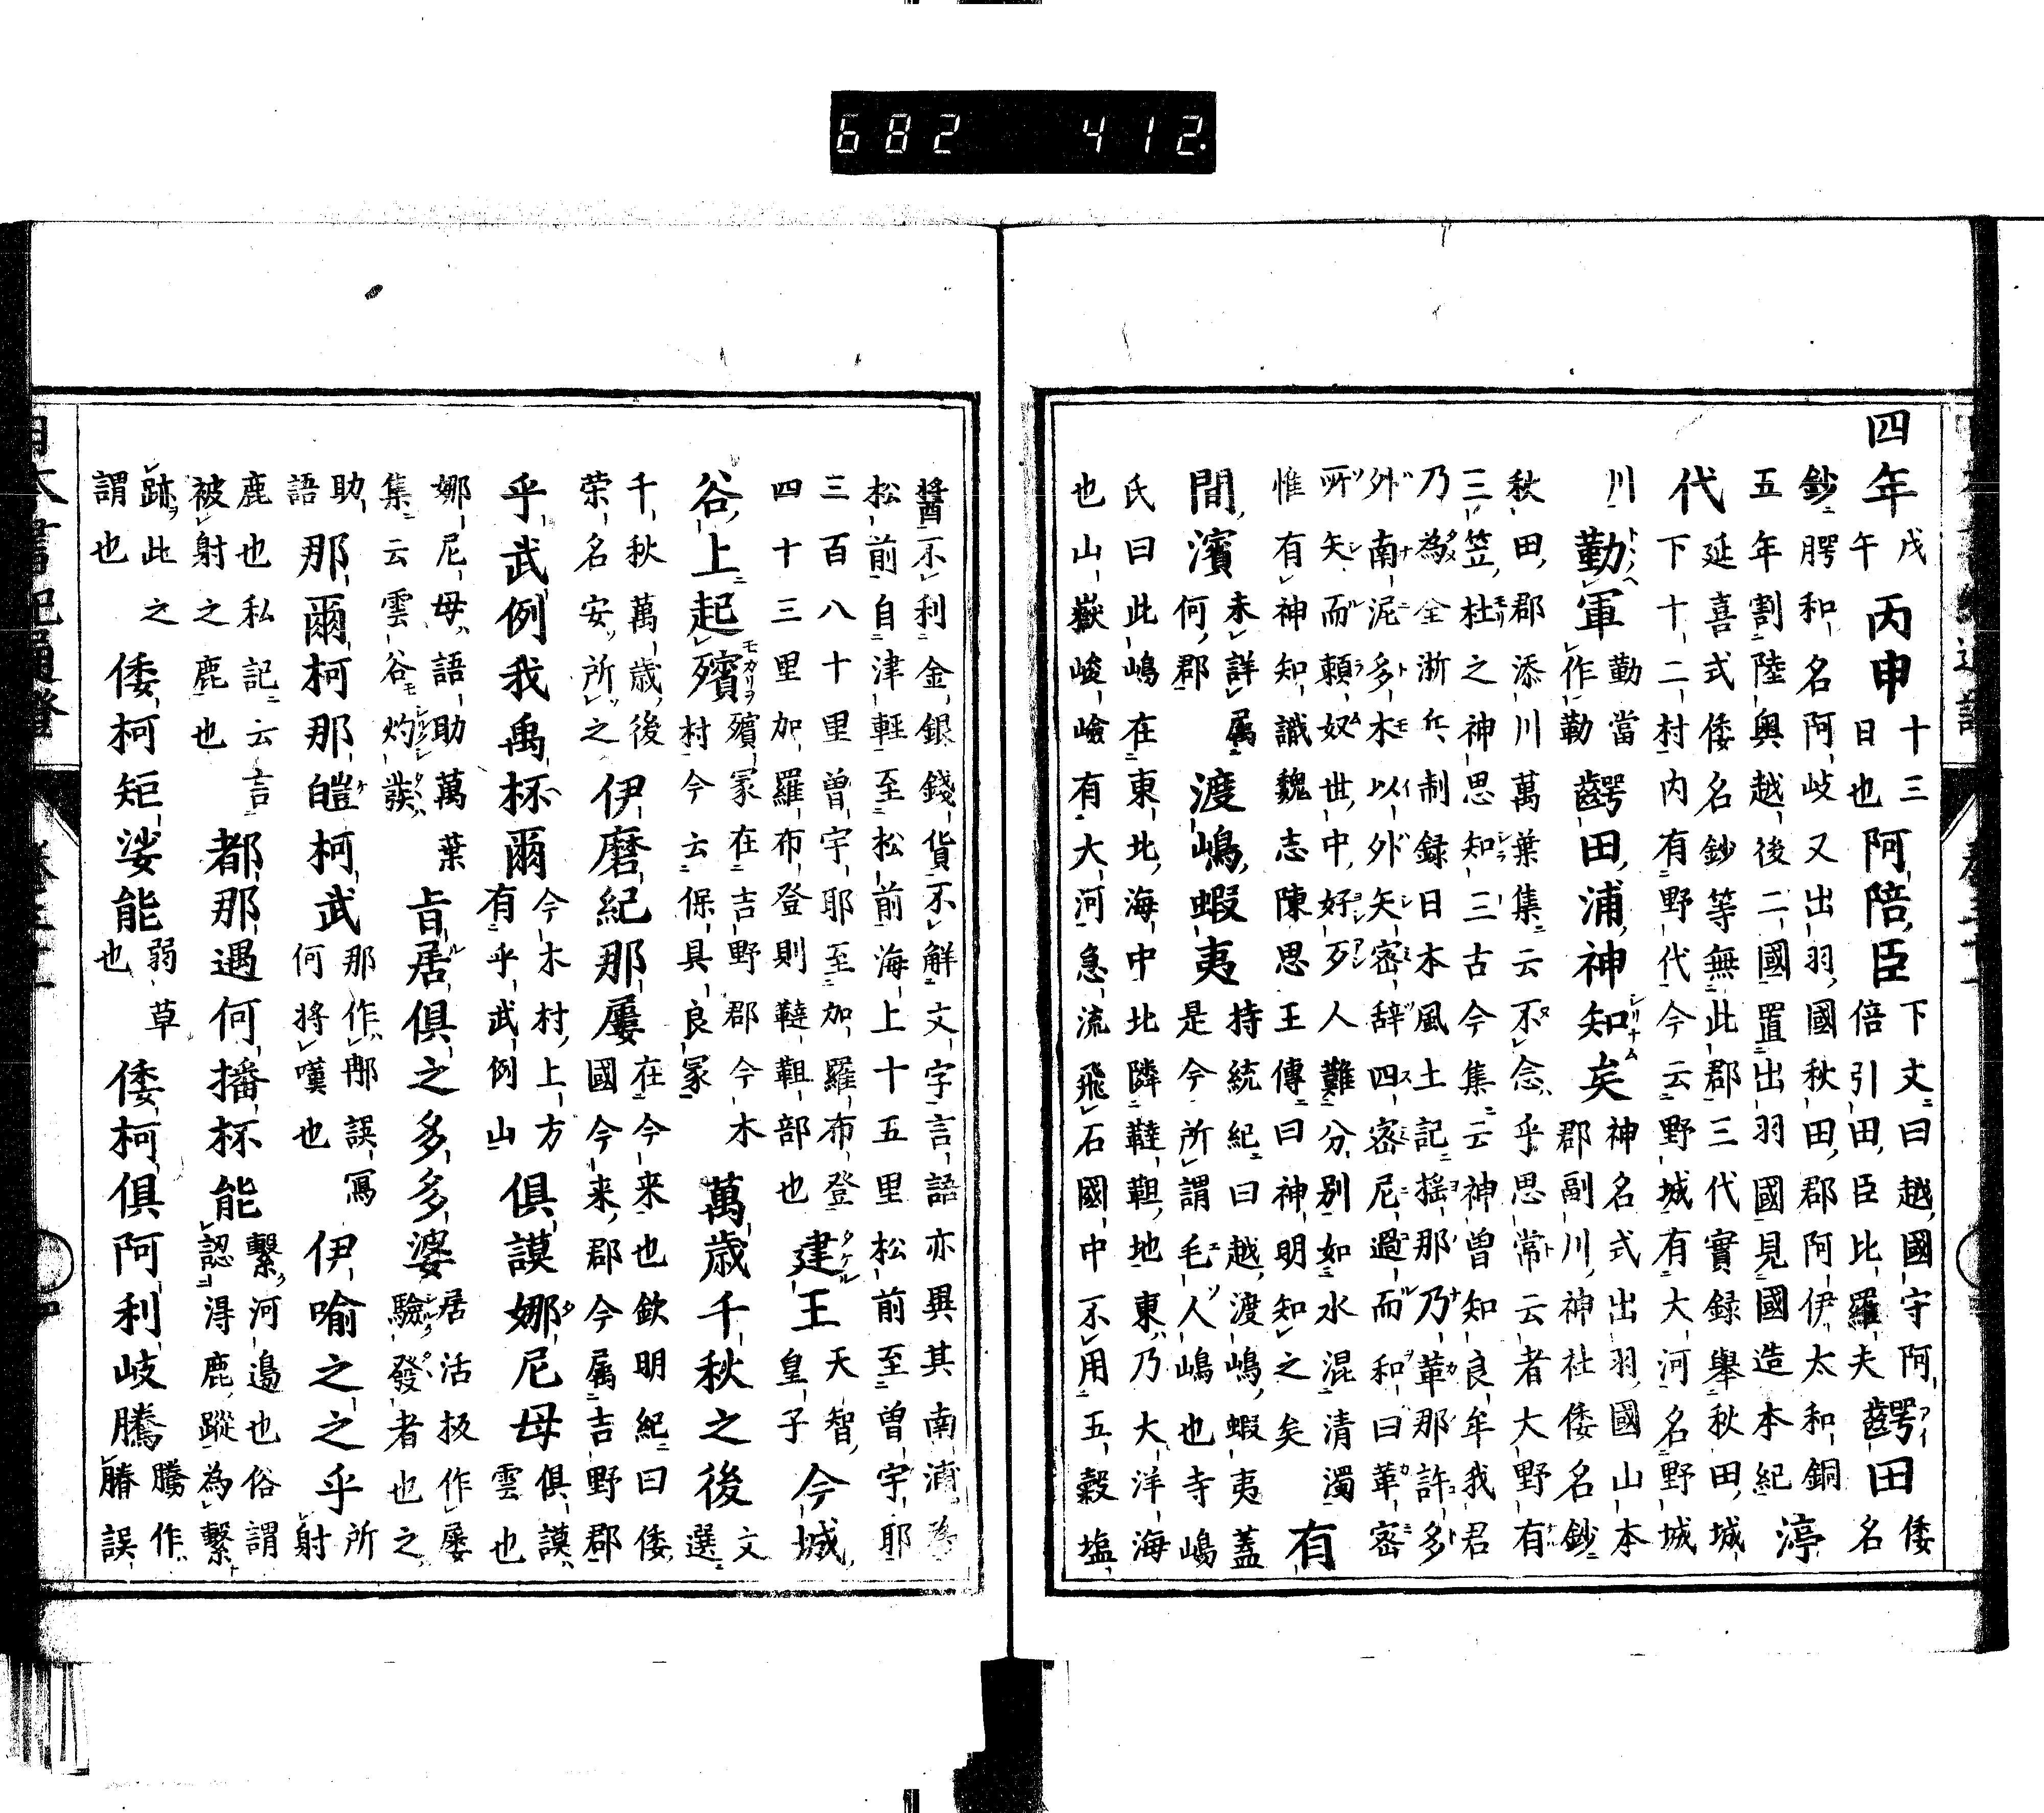 四年戊午丙申十三日也阿陪臣下文曰越國守阿倍引田臣比羅夫齶田倭名
鈔齶和名阿岐又出羽國秋田郡阿伊太和銅五年割陸奥越後二國置出羽國見國造本紀渟
代延喜式倭名鈔等無此郡三代實録舉秋田城下十二村内有野代今云野城有大河名野城
川勤軍勤當作勒齶田浦神知矣神名式出羽國山本郡副川神社倭名鈔
秋田郡添川萬葉集云不念乎思常云者大野有三笠杜之神思知三古今集云神曽知良年我君
乃為全淅兵制録日本風土記揺那乃革那許多外南泥多木以外矢密辞四密尼過而和曰革密
所矢而頼奴世中好歹人難分別如水混清濁惟有神知識魏志陳思王傳曰神明知之矣有
間濱未詳属何郡渡嶋蝦夷持統紀曰越渡嶋蝦夷蓋是今所謂毛人嶋也寺嶋
氏曰此嶋在東北海中北隣韃靼地東乃大洋海也山嶽峻嶮有大河急流飛石國中不用五穀塩
醬不利金銀錢貨不解文字言語亦異其南浦松前自津軽至松前海上十五里松前至曽宇耶
三百八十里曽宇耶至加羅布登四十三里加羅布登則韃靼部也建王天智皇子今城
谷上起殯殯冢在吉野郡今木村今云保具良冢萬歳千秋之後文選
千秋萬歳後荣名安所之伊磨紀那屡在今来也欽明紀曰倭國今来郡今属吉野郡
乎武例我禹杯爾今木村上方有乎武例山俱謨娜尼母俱謨雲也
娜尼母語助萬葉集云雲谷灼發旨居俱之多多婆居活扳作屡驗發者也之
助語那爾柯那皚柯武那作那誤冩何將嘆也伊喩之之乎所射
鹿也私記云言被射之鹿也都那遇何播杯能繫河邉也俗謂認得鹿蹤為繫
跡此之謂也倭柯矩娑能弱草也倭柯俱阿利岐騰騰作謄誤